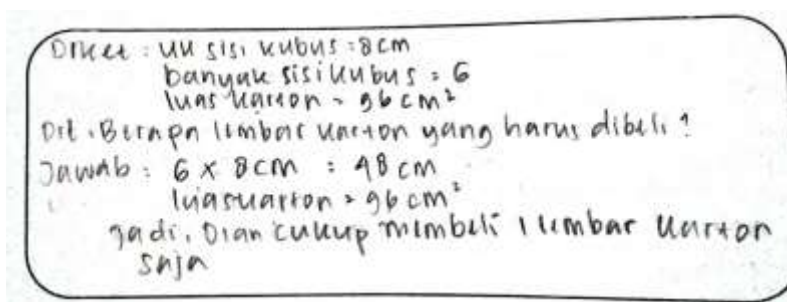 Diket : uk sisi kubus = 8cm
banyak sisi kubus = 6
luas karton = 96 cm²
Dit . Berapa lembar karton yang harus dibeli ?
Jawab : 6 x 8 cm = 48 cm
luas karton = 96 cm²
Jadi, Dian cukup membeli 1 lembar karton
saja